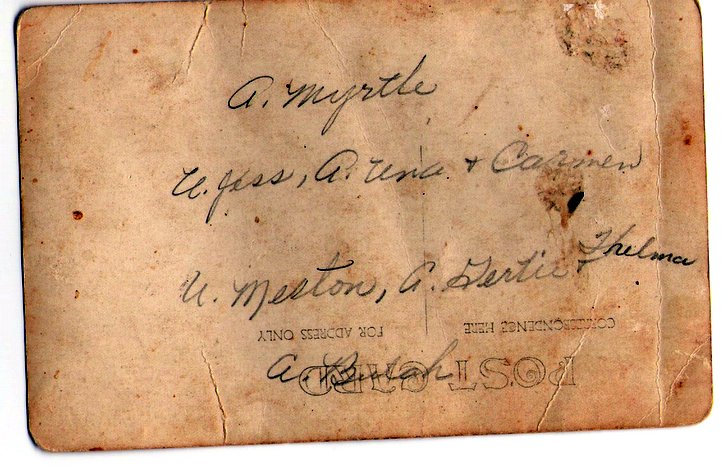 A. Myrtle
U. Jess, A. Una & Carmen
U. Meston, A. Gertie & Thelma
CORRESPONDENCE HERE
FOR ADDRESS ONLY
A. Beulah
POST CARD